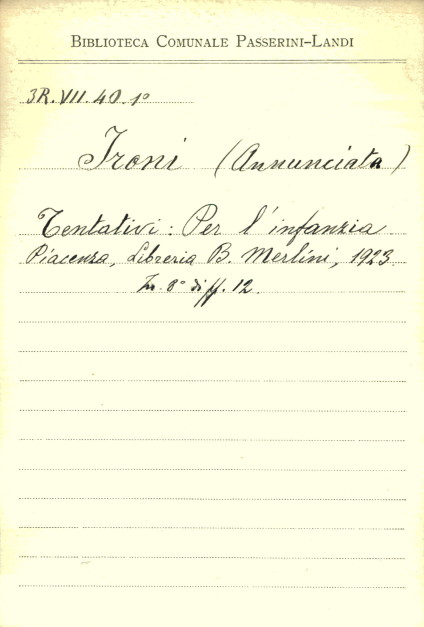 BIBLIOTECA COMUNALE PASSERINI-LANDI
3R.VII.40.1º
Ironi (Annunciata)
Tentativi: Per l'infanzia
Piacenza, Libreria B. Merlini, 1923
In 8º di ff. 12.